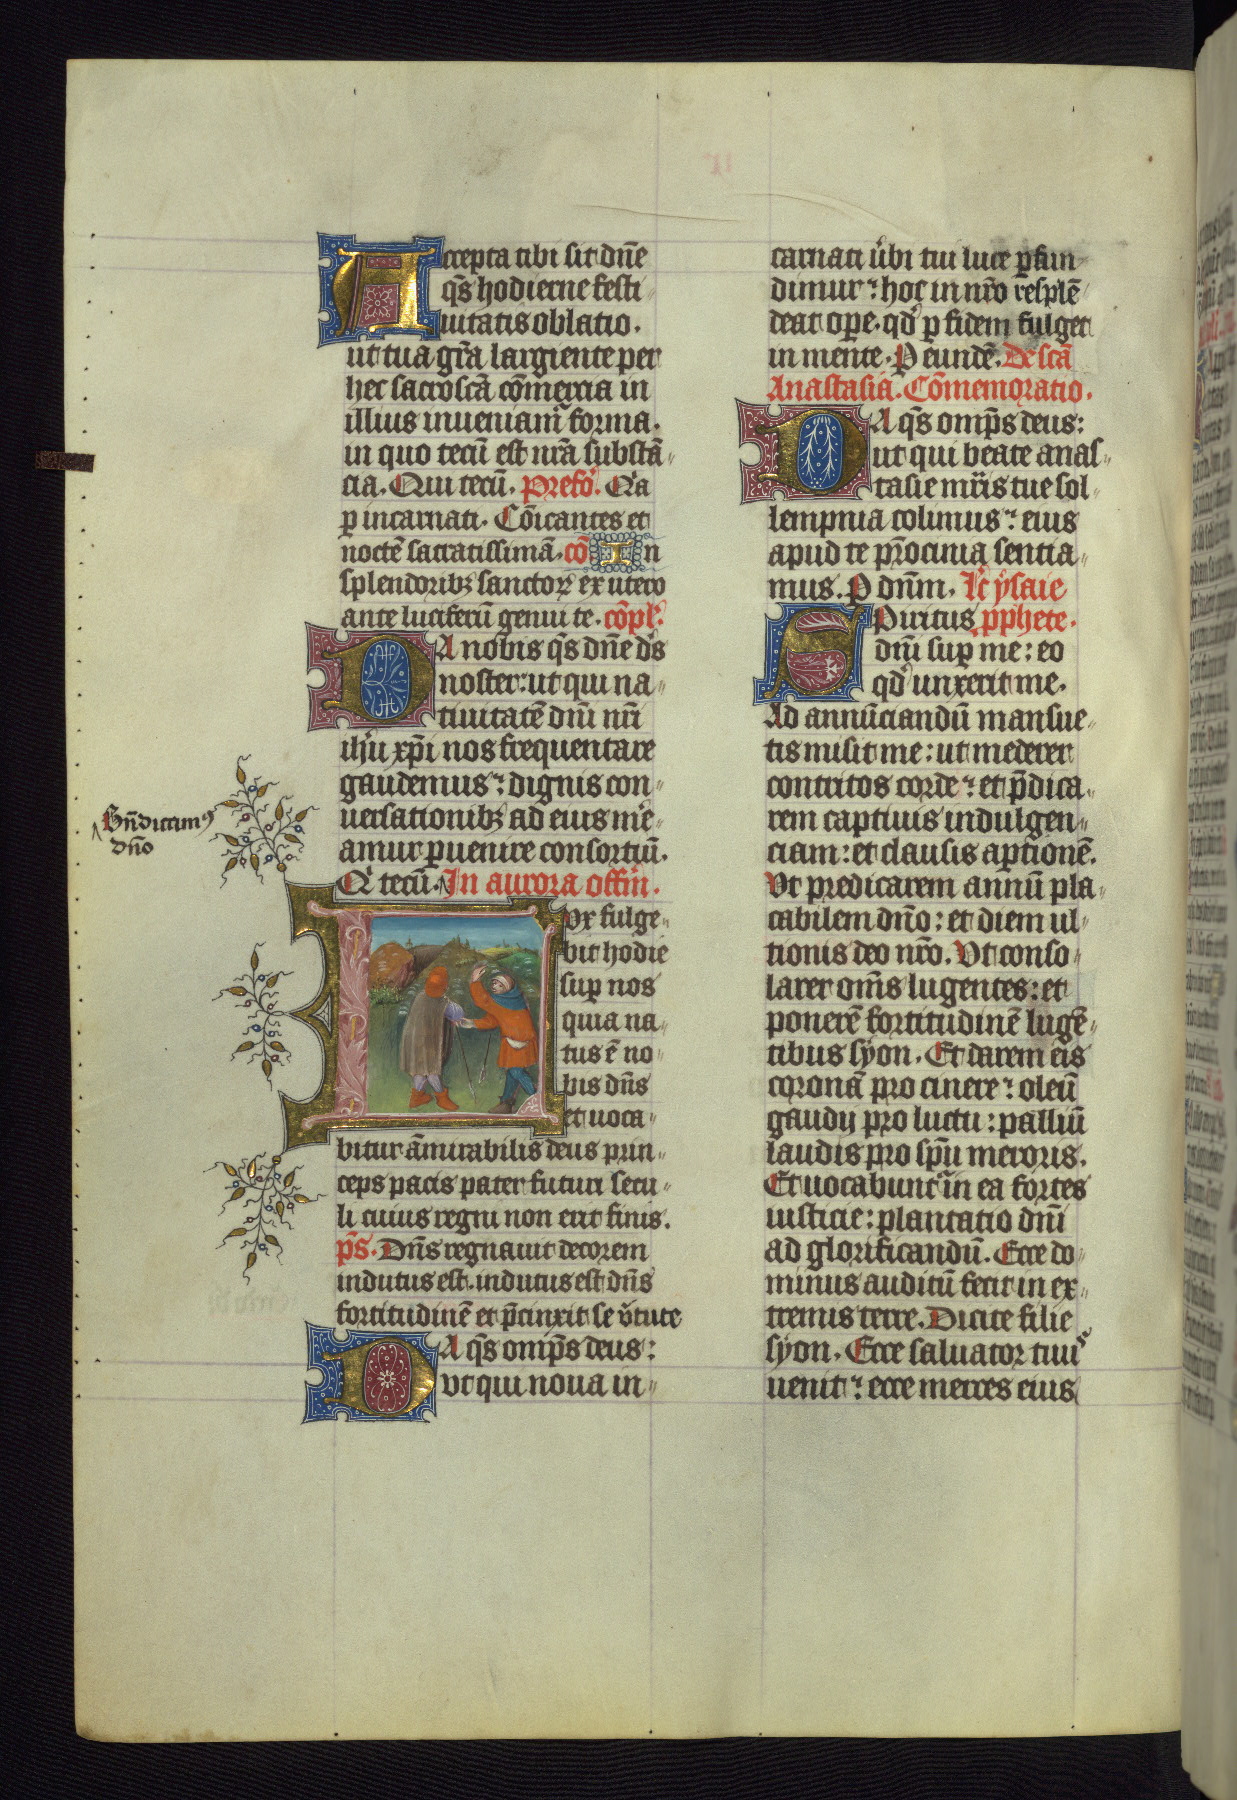 Accepta tibi sit dn̄e
qs̄ hodierne festi
uitatis oblatio.
ut tua gr̄a largiente per
hec sacrosc̄a cōmercia in
illius inueniamᷣ forma.
in quo tecū est nr̄a substā
cia. Qui tecū. Prefoᷣ. Qͥa
ꝑ incarnati. Cōicantes et
noctē sacratissimā. cō In
splendoribꝫ sanctoꝝ ex utero
ante luciferū genui te. cōpl᷑.
DA nobis qs̄ dn̄e ds̄
noster: ut qui na
tiuitatē dn̄i nr̄i
ih̄u xp̄i nos frequentare
gaudemus: dignis con
uersationibꝫ ad eius m̄e
amur ꝑuenire consortiū.
Qͥ tecū. In aurora offm̄.
Bn̄dicamꝰ
dn̄o
Lvx fulge
bit hodie
suꝑ nos
quia na
tus ē no
bis dn̄s
et uoca
bitur ām̄irabilis deus prin
ceps pacis pater futuri secu
li cuius regni non erit finis.
ps̄. Dn̄s regnauit decorem
indutus est. indutus est dn̄s
fortitudinē et p̄cinxit se v᷑tute
DA qs̄ omp̄s deus:
vt qui noua in
carnati u᷑bi tui luce ꝑfun
dimur: hoc in nr̄o resplē
deat oꝑe. qd̓ ꝑ fidem fulget
in mente. P eundē. De sc̄a
Anastasia. Cōmemoratio.
DA qs̄ omp̄s deus:
ut qui beate anas
tasie mr̄is tue sol
lempnia colimus: eius
apud te pr̄ocinia sentia
mus. P dn̄m. Lc̄ ẏsaie
SPiritus ꝓphete.
dn̄i suꝑ me: eo
qd̓ unxerit me.
Ad annūciandū mansue
tis misit me: ut mederer
contritos corde: et p̄dica
rem captiuis indulgen
ciam: et clausis aꝑtionē.
Vt predicarem annū pla
cabilem dn̄o: et diem ul
tionis deo nr̄o. Vt conso
larer om̄s lugentes: et
ponerē fortitudinē lugē
tibus sẏon. Et darem eis
coronā pro cinere: oleū
gaudij pro luctu: palliū
laudis pro sp̄u meroris.
Et uocabuntᷣ in ea fortes
iusticie: plantatio dn̄i
ad glorificandū. Ecce do
minus auditū fecit in ex
tremis terre. Dicite filie
sẏon. Ecce saluator tuuᷤ
uenit: ecce merces eius